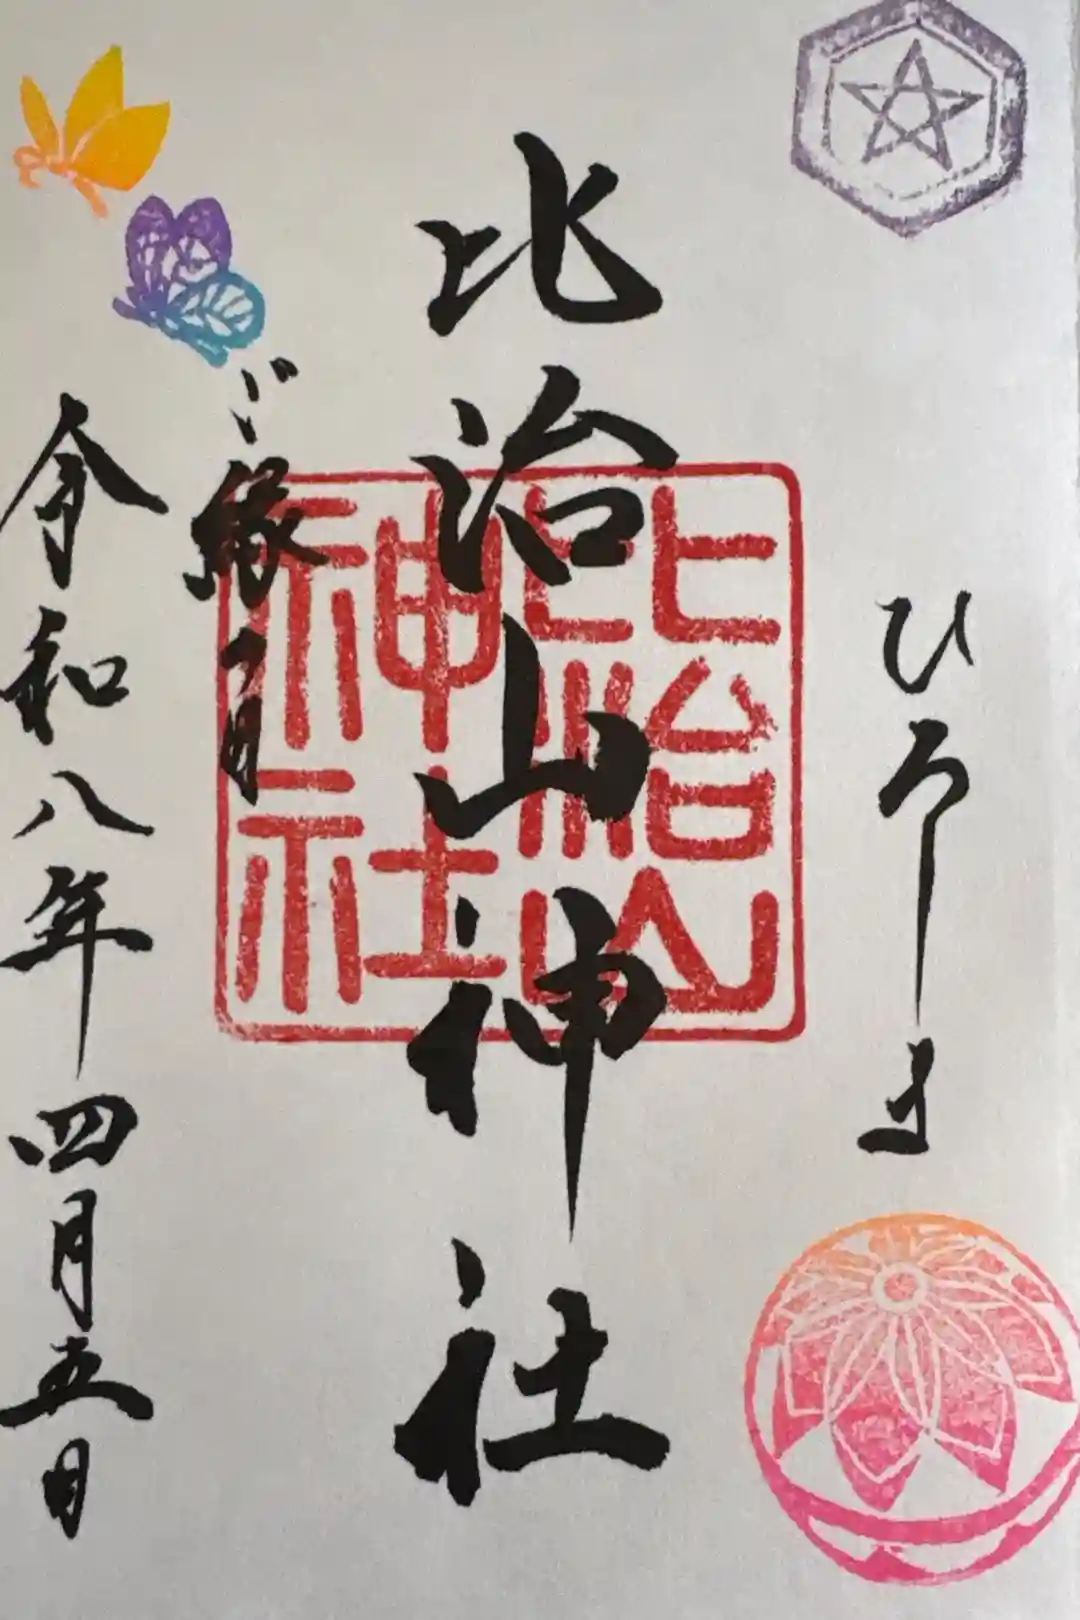 ひろしま
比治山神社
比治山
神社
ご縁の日
令和八年四月五日